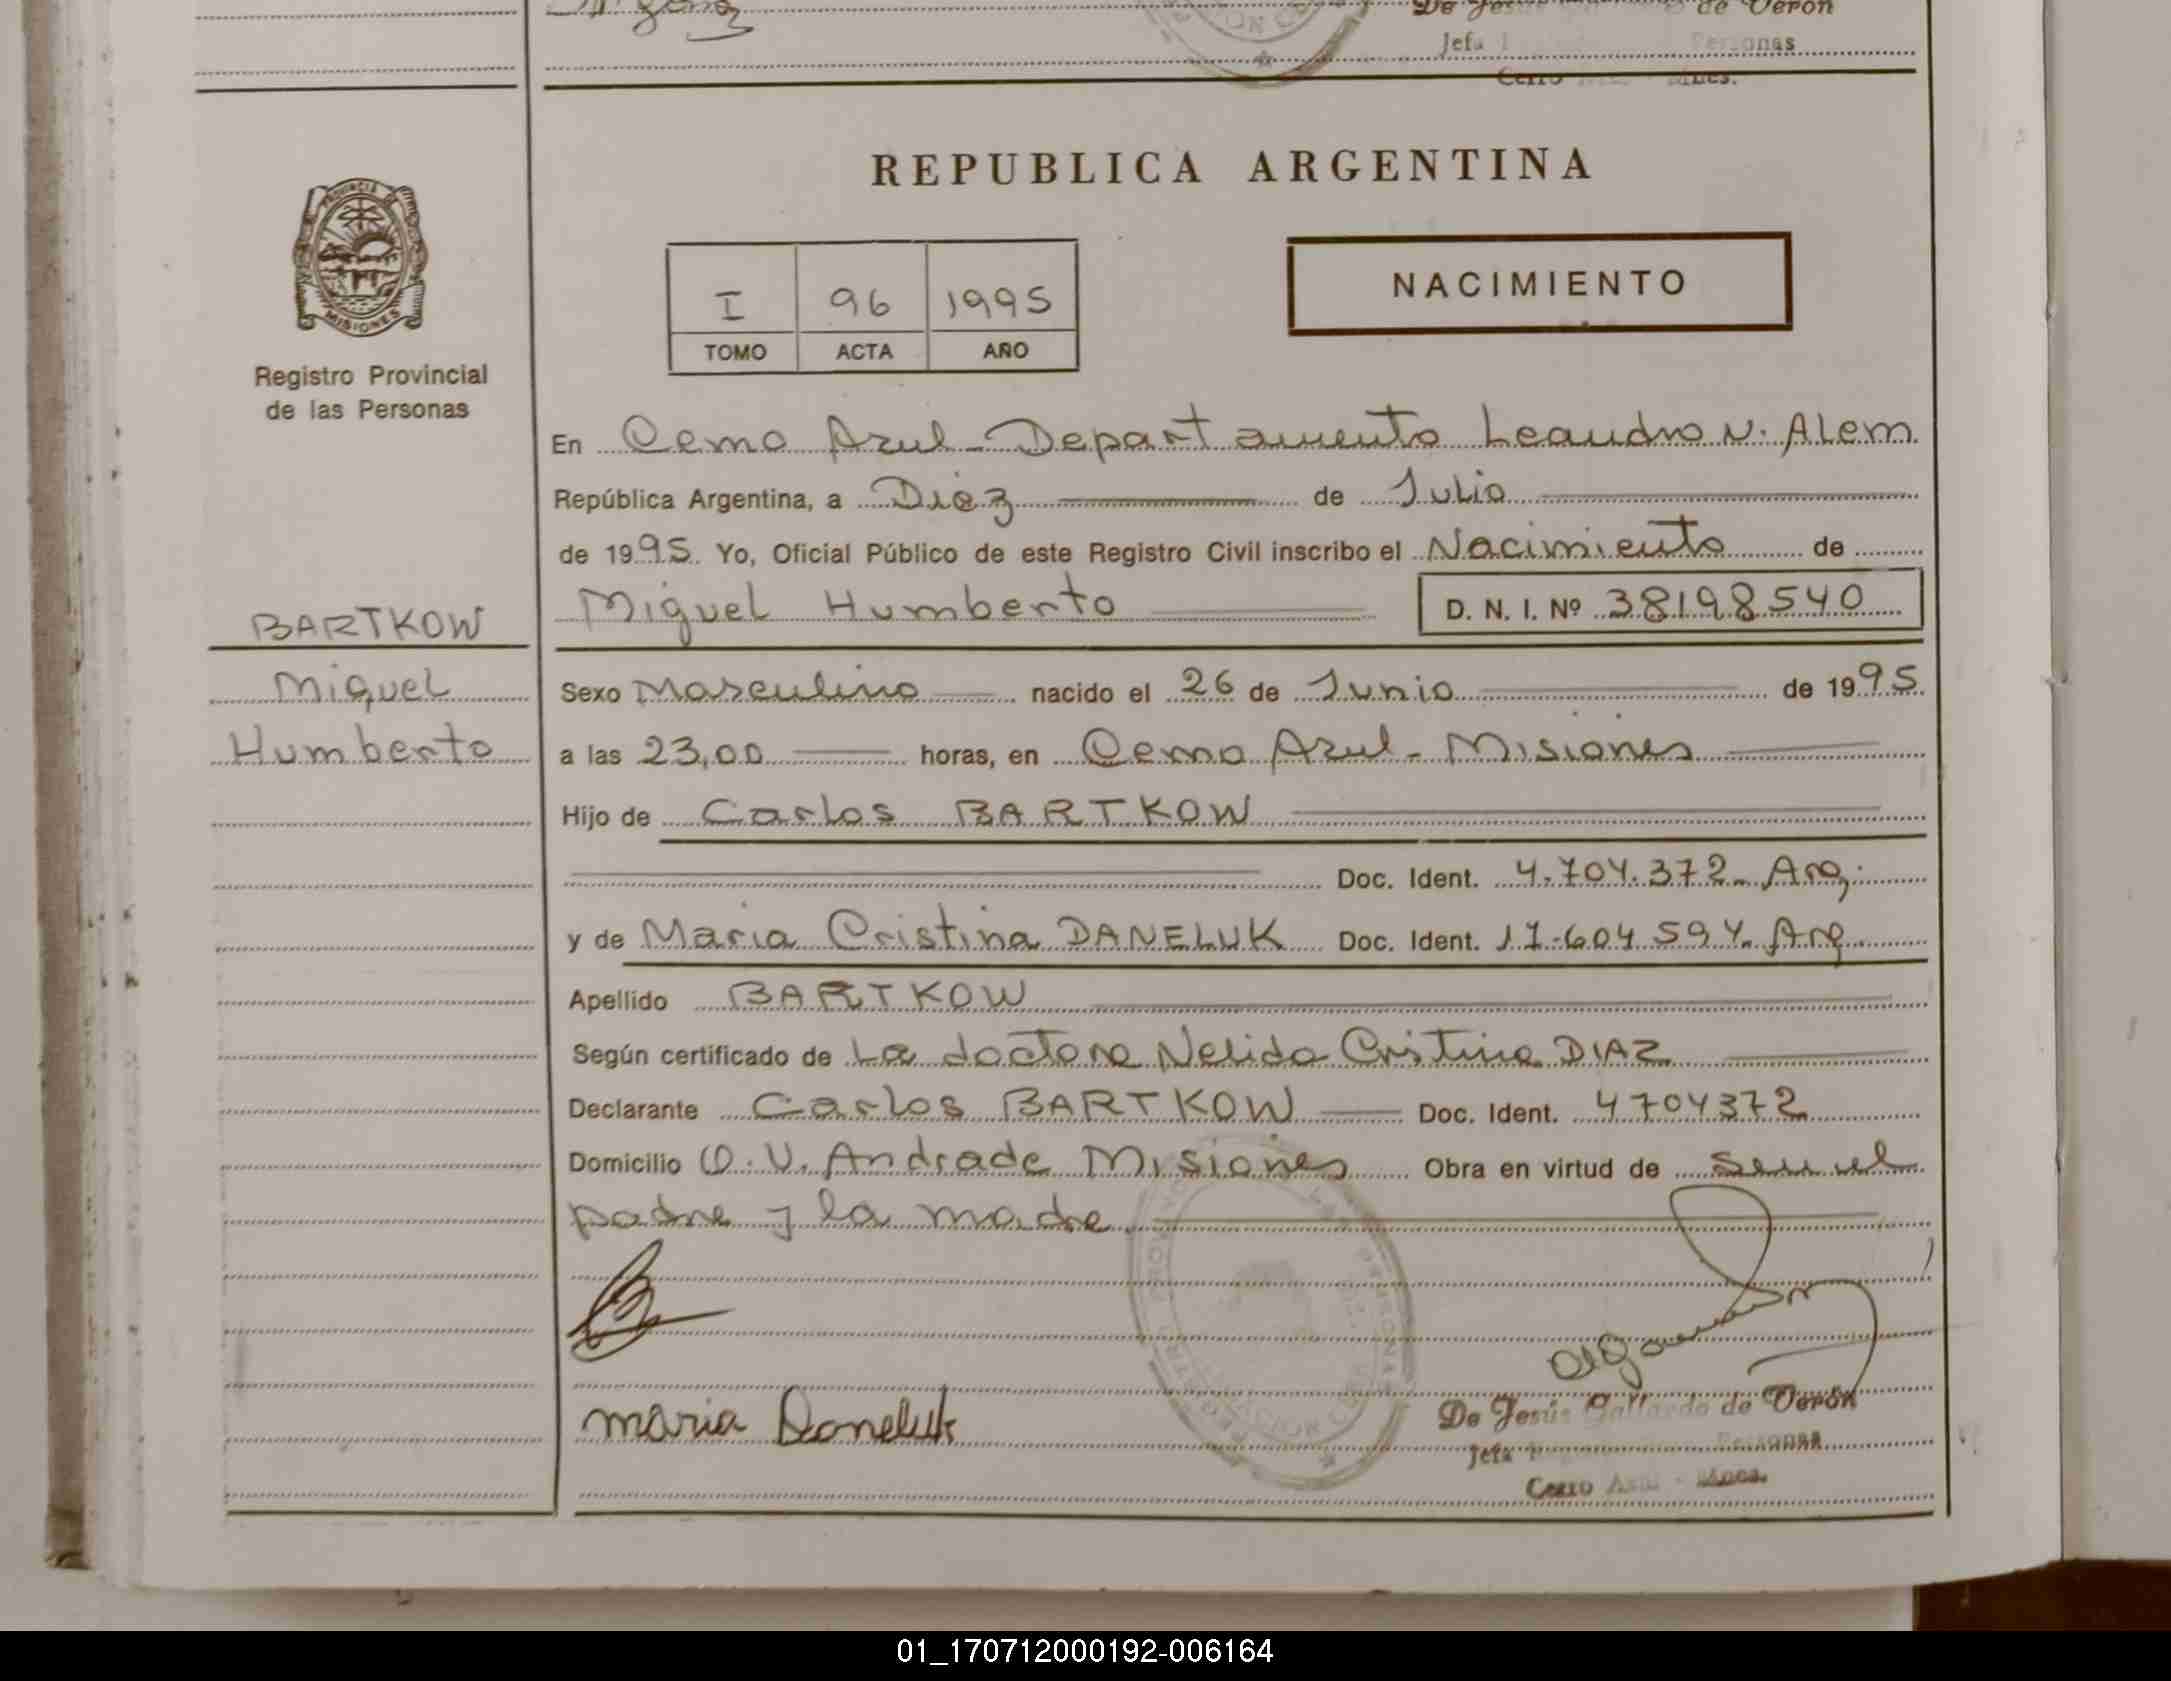 de Verón
Jefa
Personas
Cerro
PROVINCIA DE
MISIONES
Registro Provincial
de las Personas
BARTKOW
Miguel
Humberto
REPUBLICA ARGENTINA
I 96 1995
TOMO ACTA AÑO
NACIMIENTO
En Cerro Azul - Departamento Leandro N. Alem
República Argentina, a Diez de Julio
de 1995. Yo, Oficial Público de este Registro Civil inscribo el Nacimiento de
Miguel Humberto D. N. I. Nº 38198540
Sexo Masculino nacido el 26 de Junio de 1995
a las 23,00 horas, en Cerro Azul - Misiones
Hijo de Carlos BARTKOW
Doc. Ident. 4.704.372 - Arg.
y de Maria Cristina DANELUK Doc. Ident. 17.604.594. Arg.
Apellido BARTKOW
Según certificado de La doctora Nelida Cristina DIAZ
Declarante Carlos BARTKOW Doc. Ident. 4704372
Domicilio O. V. Andrade Misiones Obra en virtud de Ser el
padre y la madre.
maria Daneluk
De Jesús Gallardo de Verón
Jefa Personas
Cerro Azul - Mnes.
01_170712000192-006164